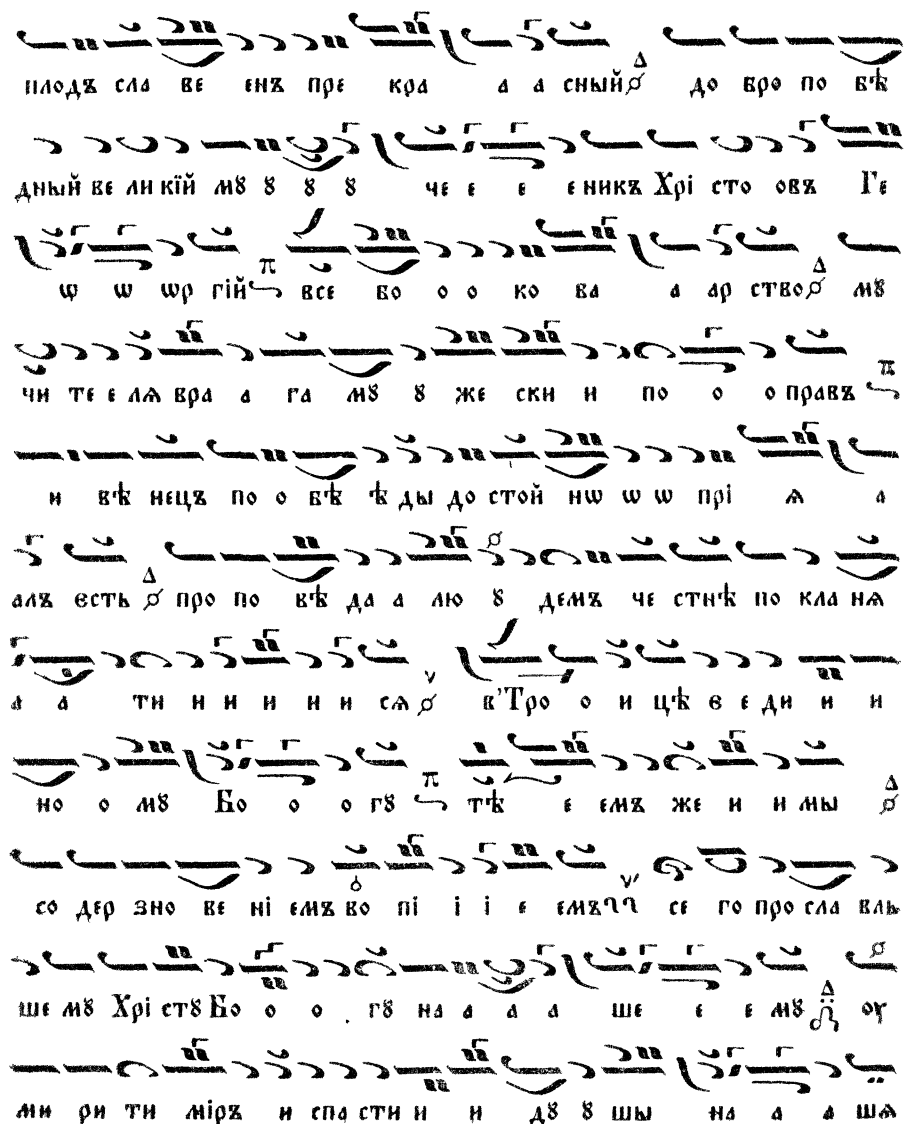 плодъ сла ве енъ пре кра а а сный Δ до бро по бѣ
дный ве ли кїй мꙋ ꙋ ꙋ ꙋ че е е е никъ Хрі сто овъ Ге
ѡ ѡ ѡр гій π все бо о о ко ва а ар ство Δ мꙋ
чи те е лѧ вра а га мꙋ ꙋ же ски и по о о правъ π
и вѣ нецъ по о бѣ ѣ ды до стой нѡ ѡ ѡ прі ѧ а
алъ єсть Δ про по вѣ да а лю ꙋ демъ че стнѣ по кла нѧ
а а ти и и и и и сѧ ν в’Тро о и цѣ є е ди и и
но о мꙋ Бо о о гꙋ π тѣ е емъ же и и мы Δ
со дер зно ве ні емъ во пі і і е емъ ν’ се го про сла вль
ше мꙋ Хрі стꙋ Бо о о . гꙋ на а а а ше е е мꙋ Δ оу
ми ри ти міръ и спа сти и и дꙋ ꙋ шы на а а шѧ